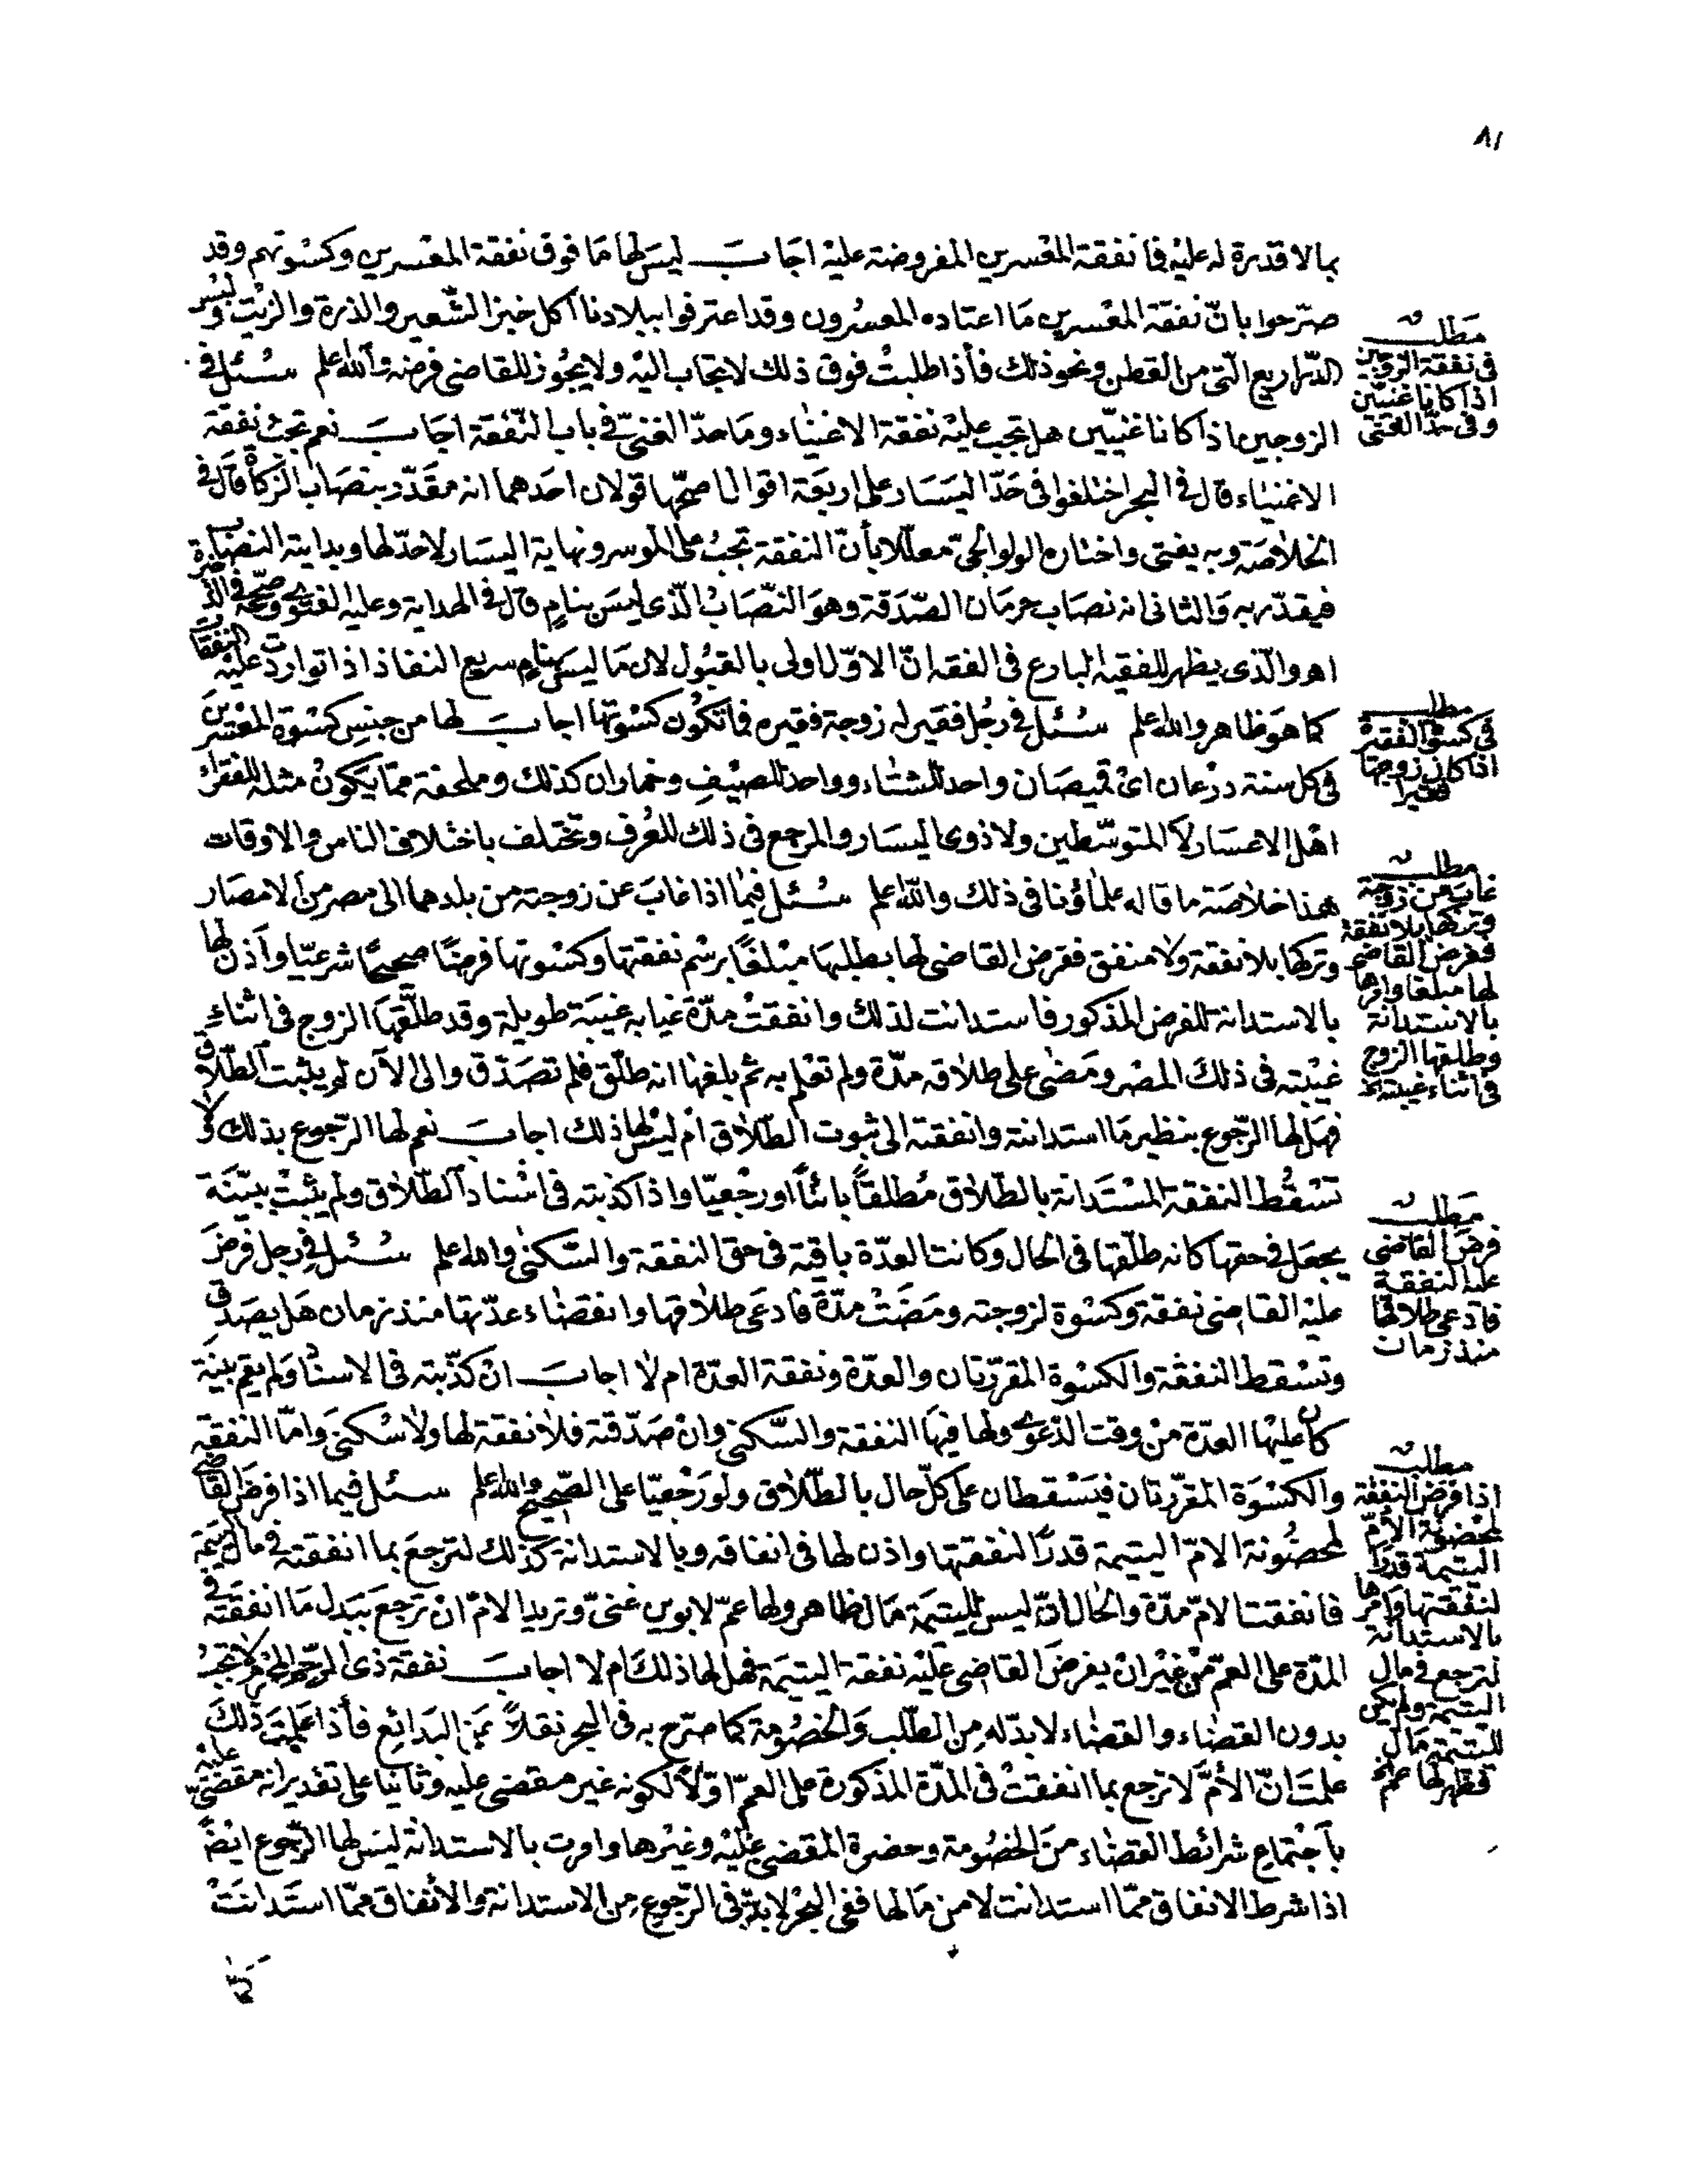 ٨١
بما لا قدرة له عليه فما نفقة المعسرين المفروضة عليه اجاب ليس لها ما فوق نفقة المعسرين وكسوتهم وقد
صرّحوا بانّ نفقة المعسرين ما اعتاده المعسرون وقد اعترفوا ببلادنا اكل خبز الشّعير والذرة والزيت ولبس
الدّراريع الّتى من القطن ونحو ذلك فأذا طلبت فوق ذلك لا تجاب اليه ولا يجوز للقاضى فرضه والله اعلم سئل فى
الزوجين اذا كانا غنيّين هل تجب عليه نفقة الاغنياء وما حدّ الغنىّ فى باب النّفقة اجاب نعم تجب نفقة
الاغنياء قال فى البحر اختلفوا فى حدّ اليسار على اربعة اقوال اصحّها قولان احدهما انه مقدّر بنصاب الزكاة قال فى
الخلاصة وبه يفتى واختاره الولوالجى معلّلا بأنّ النفقة تجب على الموسر ونهاية اليسار لا حدّ لها وبدايته النصاب
فيقدّر به والثانى انه نصاب حرمان الصّدقة وهو النّصاب الّذى ليس بنامٍ قال فى الهداية وعليه الفتوى وصحّحه فى الذخيرة
اهـ والّذى يظهر للفقيه البارع فى الفقه انّ الاوّل اولى بالقبول لان ما ليس بنامٍ سريع النفاذ اذا تواردت عليه النفقات
كما هو ظاهر والله اعلم سئل فى رجل فقير له زوجة فقيره فما تكون كسوتها اجاب لها من جنس كسوة المعسرين
فى كل سنة درعان اى قميصان واحد للشتاء وواحد للصيف وخماران كذلك وملحفة ممّا يكون مثله للفقراء
اهل الاعسار لا المتوسّطين ولا ذوى اليسار والمرجع فى ذلك للعُرف وتختلف باختلاف الناس والاوقات
هذا خلاصة ما قاله علماؤنا فى ذلك والله اعلم سئل فيما اذا غاب عن زوجته من بلدهما الى مصر من الامصار
وتركها بلا نفقة ولا منفق ففرض القاضى لها بطلبها مبلغًا برسم نفقتها وكسوتها فرضًا صحيحًا شرعيّا واذن لها
بالاستدانة للفرض المذكور فاستدانت لذلك وانفقت مدّة غيابه غيبة طويلة وقد طلّقها الزوج فى اثناء
غيبته فى ذلك المصر ومضى على طلاقه مدّة ولم تعلم به ثم بلغها انه طلّق فلم تصدّق والى الآن لم يثبت الطّلاق
فهل لها الرّجوع بنظير ما استدانته وانفقته الى ثبوت الطّلاق ام ليس لها ذلك اجاب نعم لها الرّجوع بذلك ولا
تسقط النفقة المستدانة بالطّلاق مطلقًا بائنًا او رجعيّا واذا كذبته فى اسناد الطّلاق ولم يثبت ببيّنة
يجعل فى حقها كانه طلّقها فى الحال وكانت العدّة باقية فى حق النفقة والسّكنى والله اعلم سئل فى رجل فرض
عليه القاضى نفقة وكسوة لزوجته ومضت مدّة فادعى طلاقها وانقضاء عدّتها منذ زمان هل يصدق
وتسقط النفقة والكسوة المقرّرتان والعدّة ونفقة العدّة ام لا اجاب انْ كذّبته فى الاسناد ولم يقم بينة
كان عليها العدّة من وقت الدّعوى ولها فيها النفقة والسّكنى وان صدّقته فلا نفقة لها ولا سكنى وامّا النفقة
والكسوة المقرّرتان فيسقطان على كلّ حال بالطّلاق ولو رجعيّا على الصّحيح والله اعلم سئل فيما اذا فرض القاضى
لمحضونة الامّ اليتيمة قدرًا لنفقتها واذن لها فى انفاقه وبالاستدانة كذلك لترجع بما انفقته فى مال اليتيمة
فانفقت الامّ مدّة والحال انّه ليس لليتيمة مال ظاهر ولها عمّ لابوين غنىّ وتريد الامّ ان ترجع ببدل ما انفقته فى
المدّة على العم من غير ان يفرض القاضى عليه نفقة اليتيمة فهل لها ذلك ام لا اجاب نفقة ذى الرّحم المحرم لا تجب
بدون القضاء والقضاء لا بدّ له من الطّلب والخصومة كما صرّح به فى البحر نقلاً عن البدائع فأذا علمت ذلك
علمت انّ الأمّ لا ترجع بما انفقتْ فى المدّة المذكورة على العمّ اوّلاً لكونه غير مقضى عليه وثانيا على تقدير انه مقضىّ عليه
بآجتماع شرائط القضاء من الخصومة وحضرة المقضى عليه وغيرها وامرت بالاستدانة ليس لها الرّجوع ايضًا
اذا شرط الانفاق ممّا استدانت لا من مالها ففى البحر لا بدّ فى الرّجوع من الاستدانة والأنفاق ممّا استدانت
مطلب
فى نفقة الزوجين
اذا كانا غنيّين
وفى حدّ الغنى
مطلب
فى كسوة الفقيرة
اذا كان زوجها
فقيرا
مطلب
غاب عن زوجة
وتركها بلا نفقة
ففرض القاضى
لها مبلغا وامرها
بالاستدانة
وطلقها الزوج
فى اثناء غيبته
مطلب
فرض القاضى
عليه النفقة
فادعى طلاقها
منذ زمان
مطلب
اذا فرض النفقة
لمحضونة الامّ
اليتيمة قدرا
لنفقتها وامرها
بالاستدانة
لترجع فى مال
اليتيمة ولم يكن
لليتيمة مال
فظهر لها عم